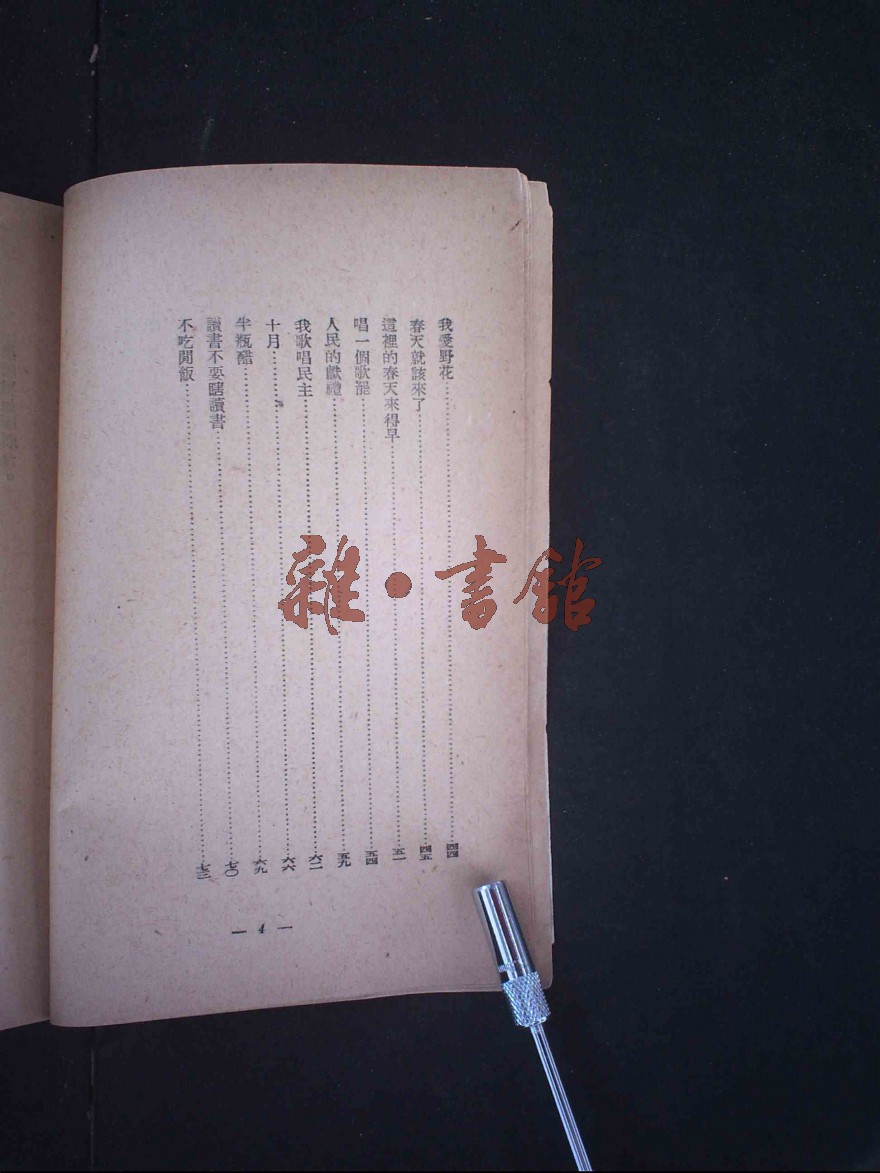 我愛野花……四四
春天就該來了……四五
這裡的春天來得早……五一
唱一個歌罷……五四
人民的獻禮……五九
我歌唱民主……六二
十月……六六
半瓶醋……六九
讀書不要瞎讀書……七〇
不吃閒飯……七三
— 4 —
雜·書館